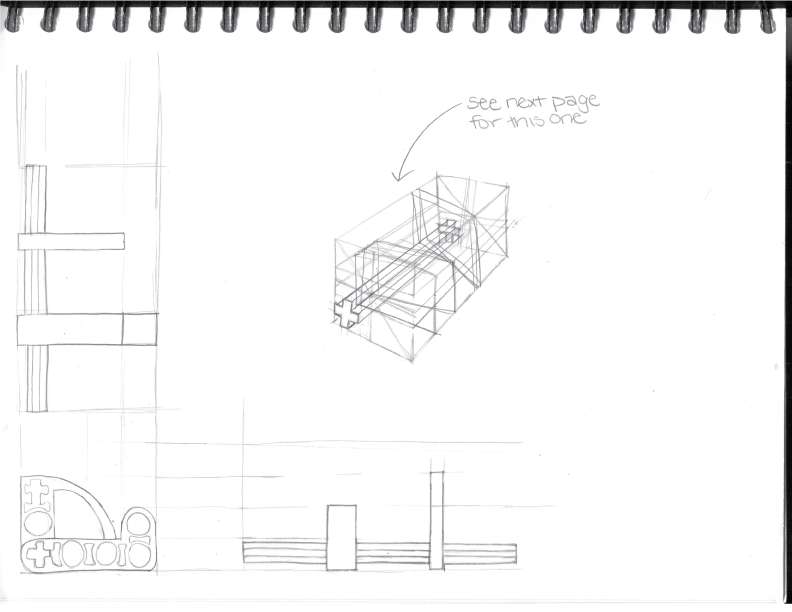 see next page
for this one